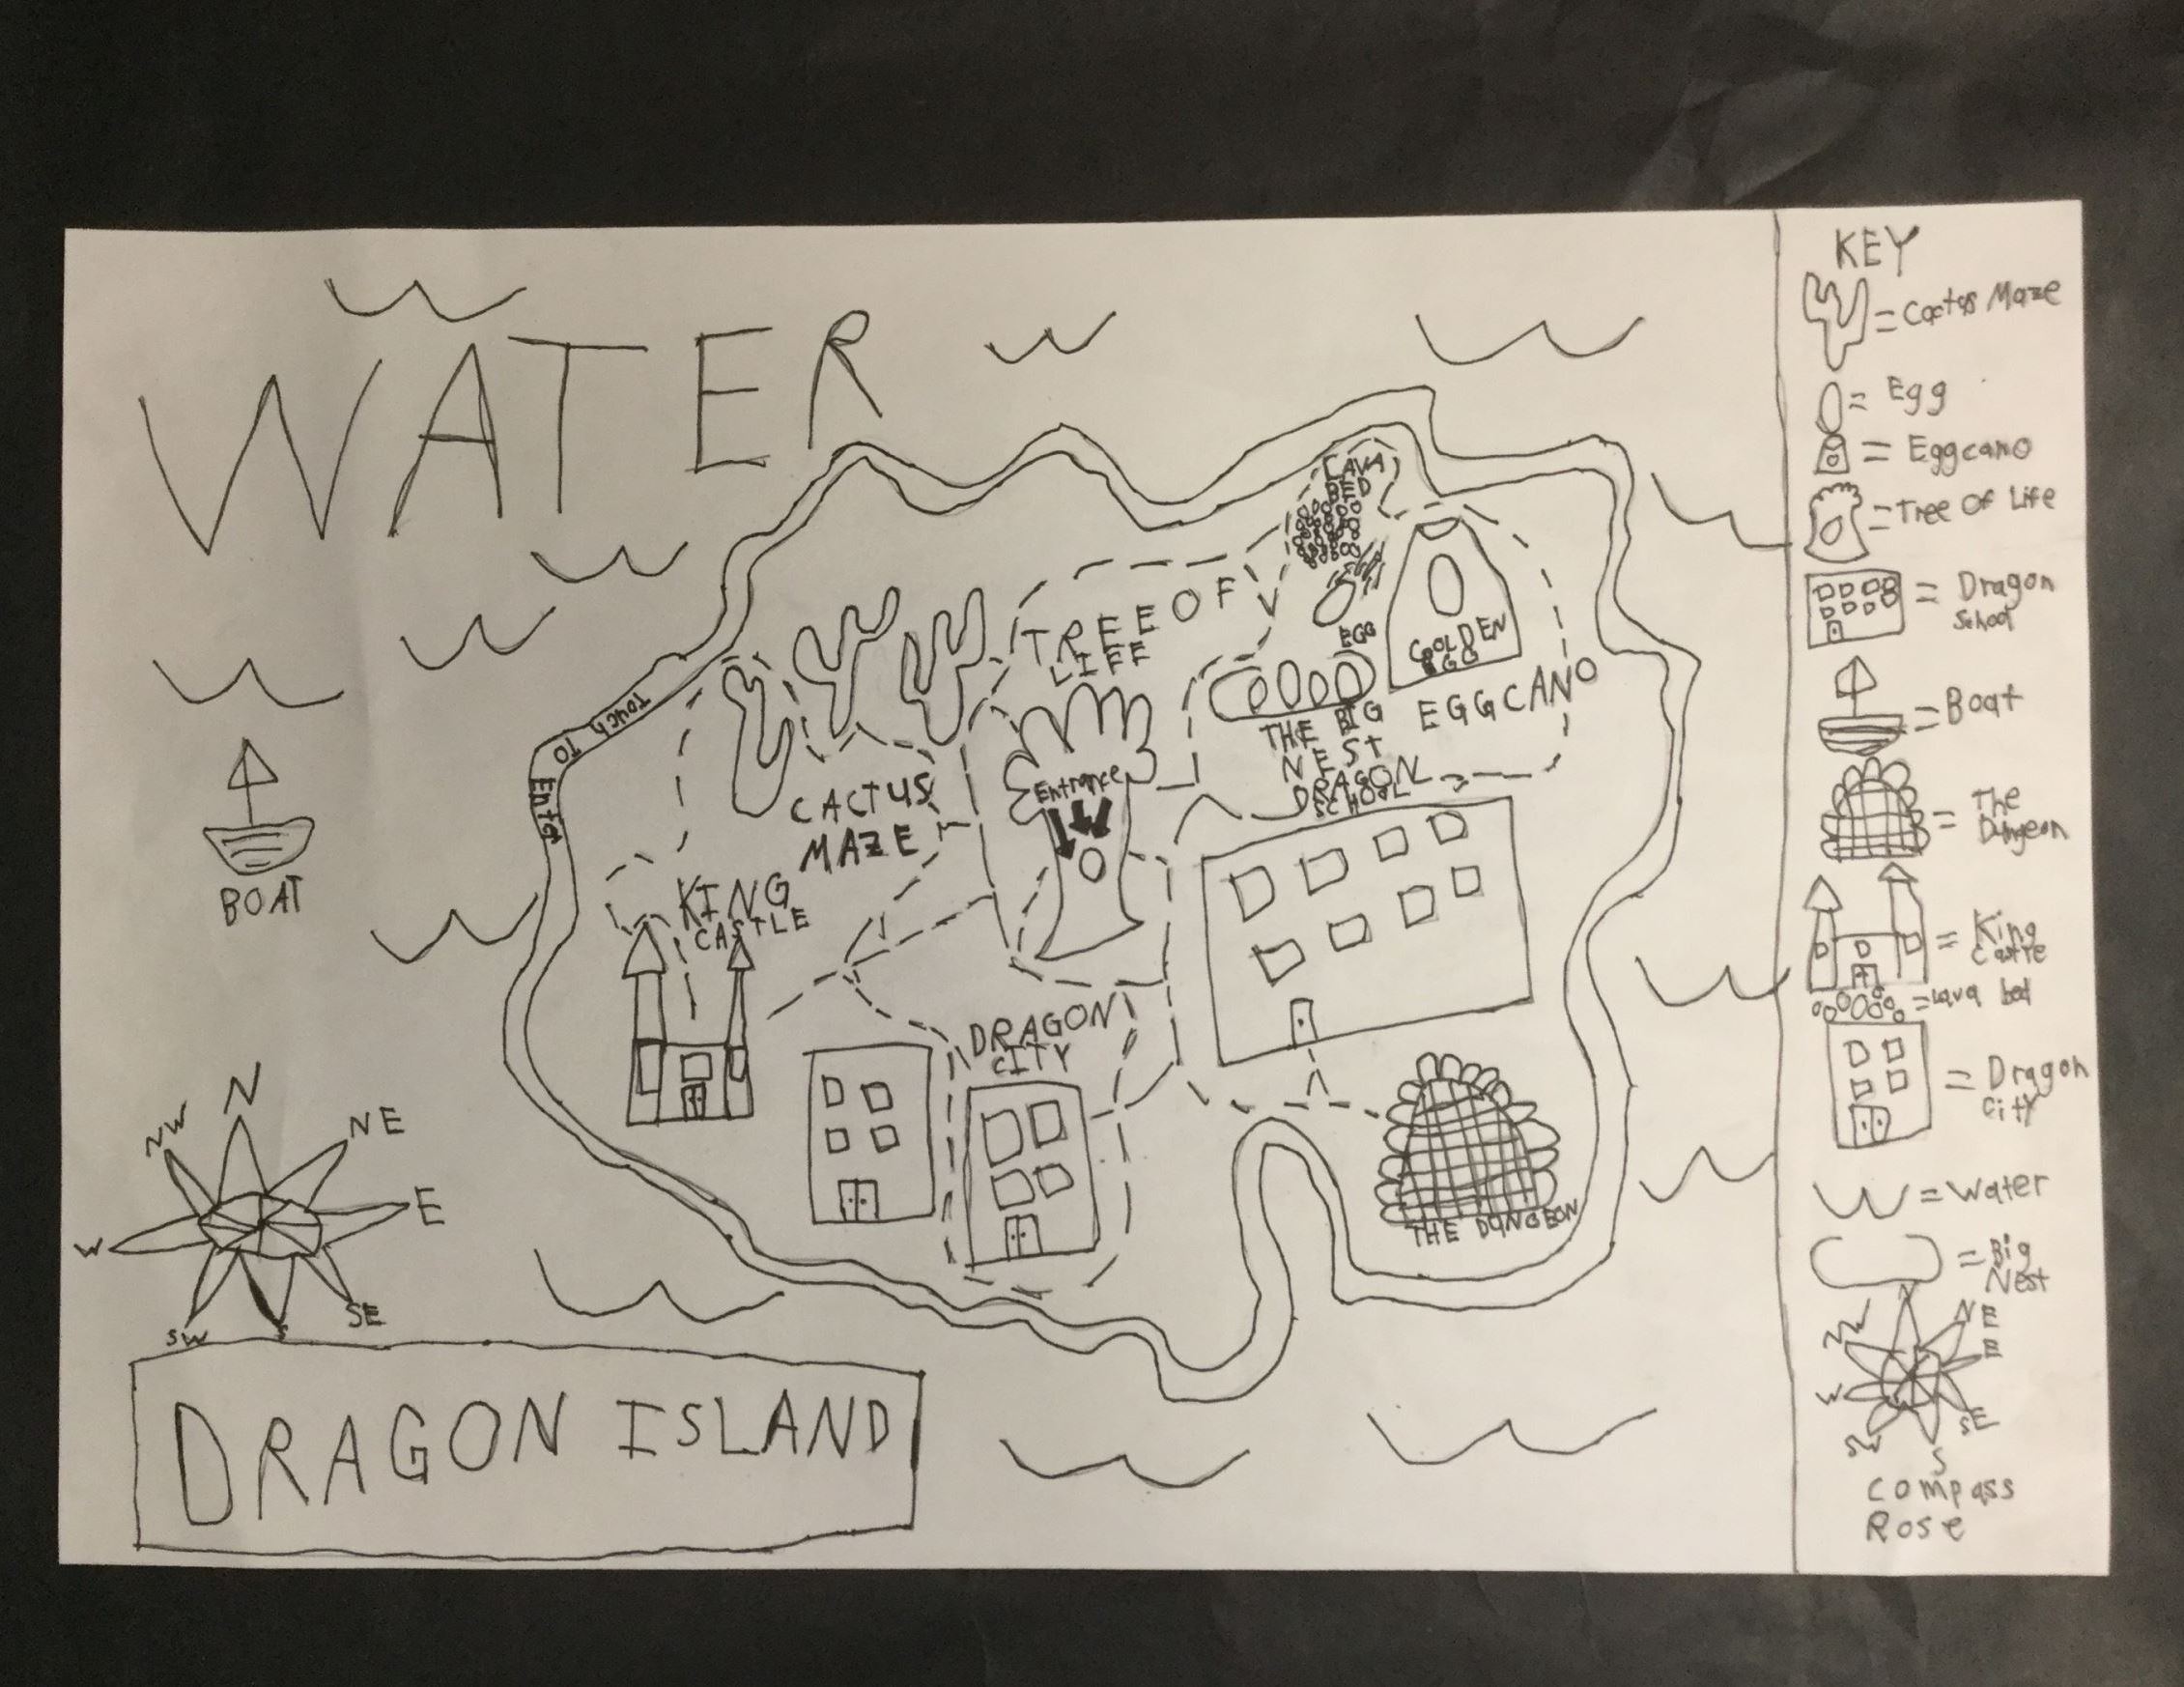 WATER
LAVA
BED
TREE OF
LIFE
EGG
GOLDEN
EGG
EGGCANO
THE BIG
NEST
Touch
TO
Enter
CACTUS
MAZE
Entrance
DRAGON
SCHOOL
BOAT
KING
CASTLE
DRAGON
CITY
THE DUNGEON
N
NW
NE
E
W
SW
S
SE
DRAGON ISLAND
KEY
= Cactus Maze
= Egg
= Eggcano
= Tree Of Life
= Dragon
School
= Boat
= The
Dungeon
= King
Castle
= Lava bed
= Dragon
City
= Water
= Big
Nest
N
NW
NE
E
W
SW
S
SE
Compass
Rose